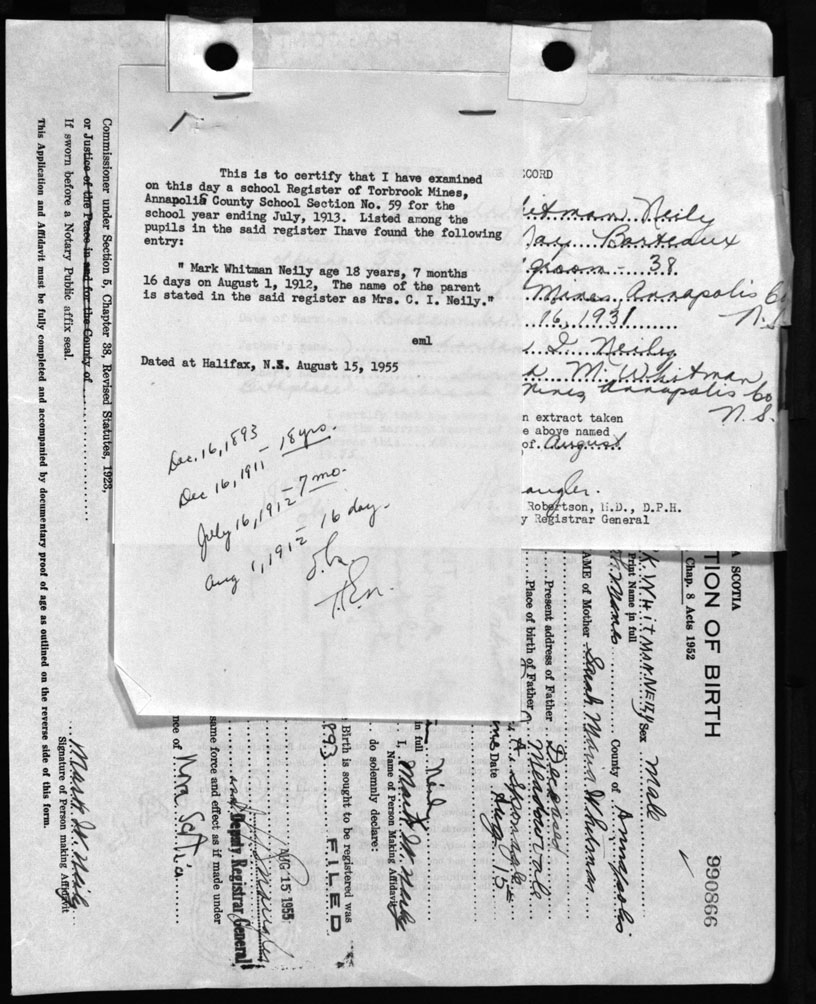 This is to certify that I have examined
on this day a school Register of Torbrook Mines,
Annapolis County School Section No. 59 for the
school year ending July, 1913. Listed among the
pupils in the said register Ihave found the following
entry:
" Mark Whitman Neily age 18 years, 7 months
16 days on August 1, 1912, The name of the parent
is stated in the said register as Mrs. C. I. Neily."
eml
Dated at Halifax, N.S. August 15, 1955
Dec. 16, 1893
Dec 16, 1911 - 18 yrs.
July 16, 1912 - 7 mo.
Aug 1, 1912 - 16 day.
CORD
itman Neily
May Barteaux
groom - 38
Mines Annapolis Co
N.S.
16, 1931
s I. Neily
M. Whitman
Mines Annapolis Co
N.S.
n extract taken
e above named
of August
Robertson, M.D., D.P.H.
y Registrar General
A SCOTIA
Chap. 8 Acts 1952
TION OF BIRTH
990866
K. WHITMAN NEILY Sex Male
Print Name in full
Mines County of Annapolis
AME of Mother Sarah Maria Whitman
Present address of Father Deceased
Place of birth of Father Meadowvale
Date Aug. 15
in full Neily
I, Mark W. Neily
Name of Person Making Affidavit
do solemnly declare:
Birth is sought to be registered was
893
FILED
AUG 15 1955
Deputy Registrar General
same force and effect as if made under
nce of Nova Scotia
Mark W. Neily
Signature of Person making Affidavit
Commissioner under Section 5, Chapter 38, Revised Statutes, 1923,
or Justice of the Peace in and for the County of
If sworn before a Notary Public affix seal.
This Application and Affidavit must be fully completed and accompanied by documentary proof of age as outlined on the reverse side of this form.